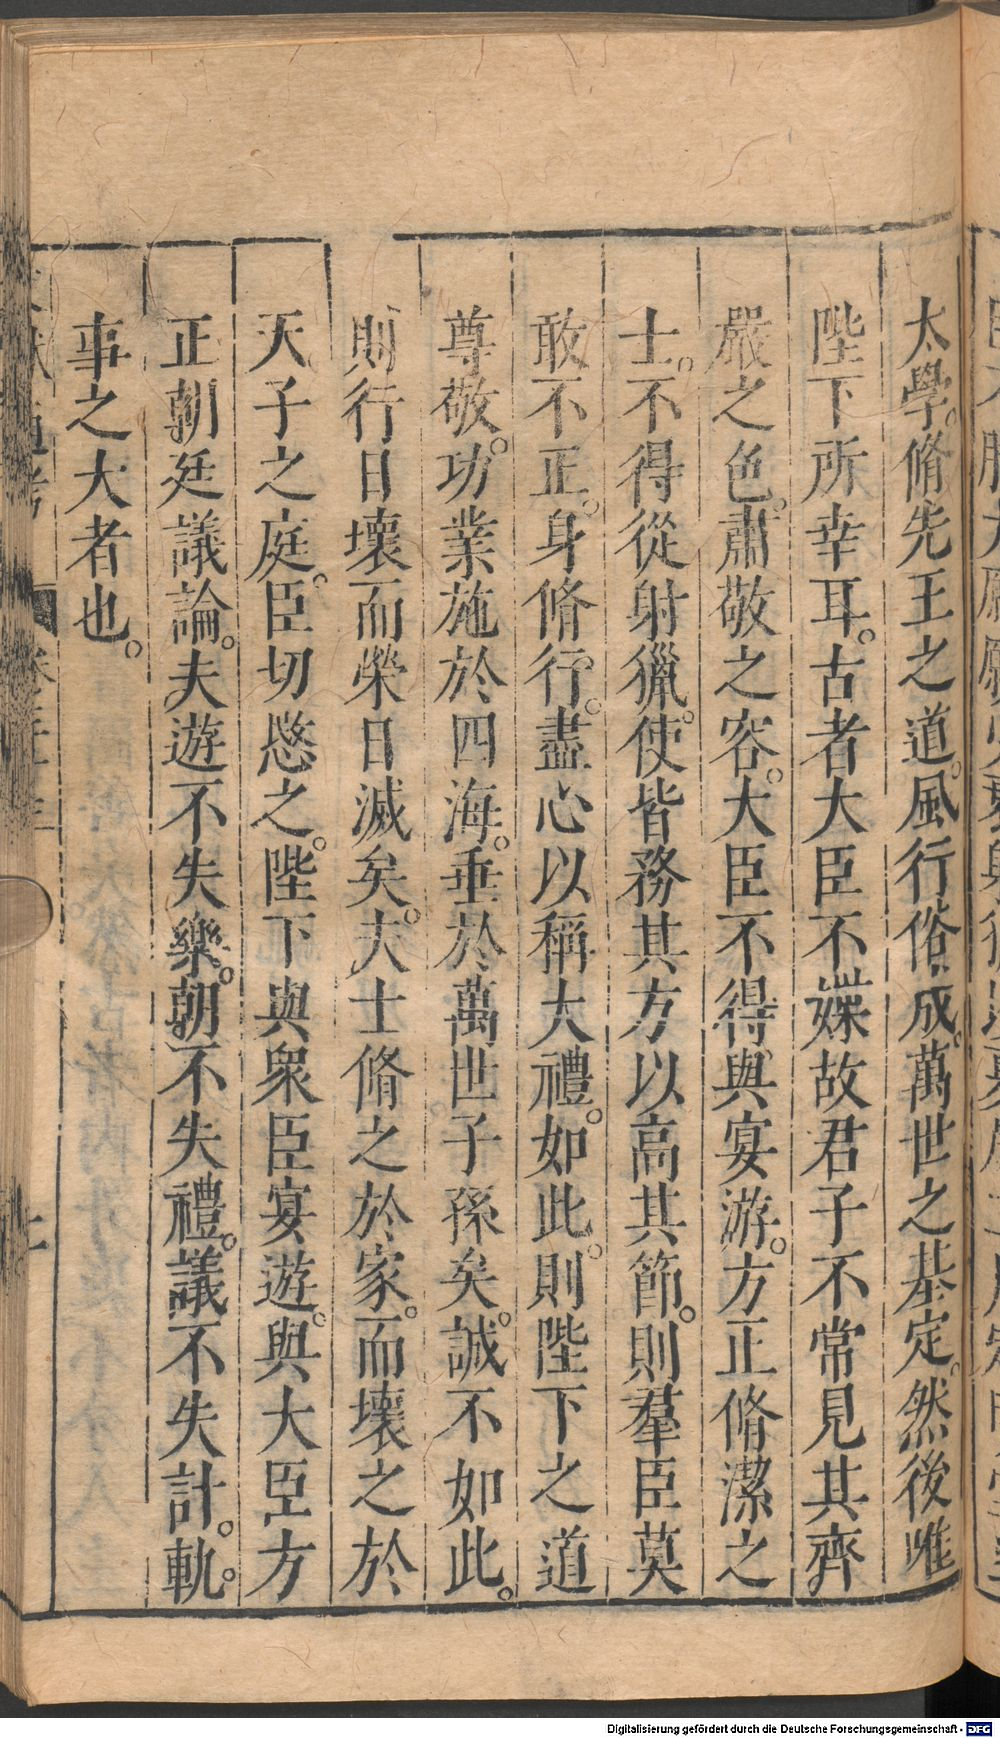 太學。脩先王之道。風行俗成。萬世之基定。然後唯
陛下所幸耳。古者大臣不媟故君子不常見其齊
嚴之色。肅敬之容。大臣不得與宴游。方正脩潔之
士。不得從射獵。使皆務其方以高其節。則羣臣莫
敢不正。身脩行。盡心以稱大禮。如此。則陛下之道
尊敬。功業施於四海。垂於萬世子孫矣。誠不如此。
則行日壞而榮日滅矣。夫士脩之於家。而壞之於
天子之庭。臣切愍之。陛下與衆臣宴遊。與大臣方
正朝廷議論。夫遊不失樂。朝不失禮。議不失計。軌。
事之大者也。
Digitalisierung gefördert durch die Deutsche Forschungsgemeinschaft - DFG